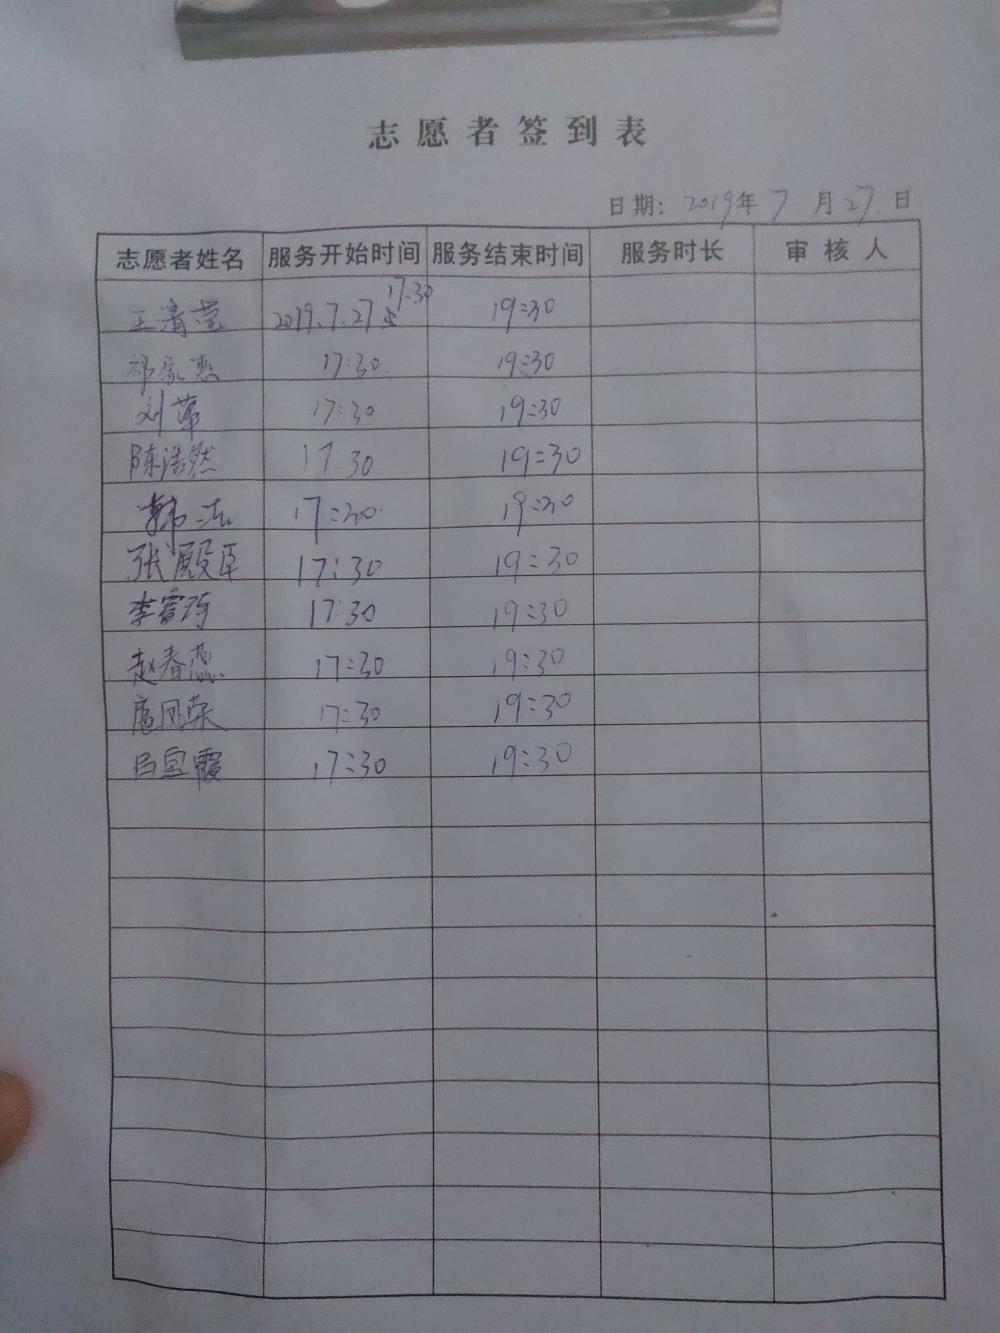 志愿者签到表
日期: 2019年7月27日
志愿者姓名 服务开始时间 服务结束时间 服务时长 审核人
王清莹 2019.7.27 17:30 19:30
祁家惠 17:30 19:30
刘苹 17:30 19:30
陈浩然 17:30 19:30
韩洁 17:30 19:30
张殿臣 17:30 19:30
李睿琦 17:30 19:30
赵春蕊 17:30 19:30
扈凤荣 17:30 19:30
吕宜霞 17:30 19:30